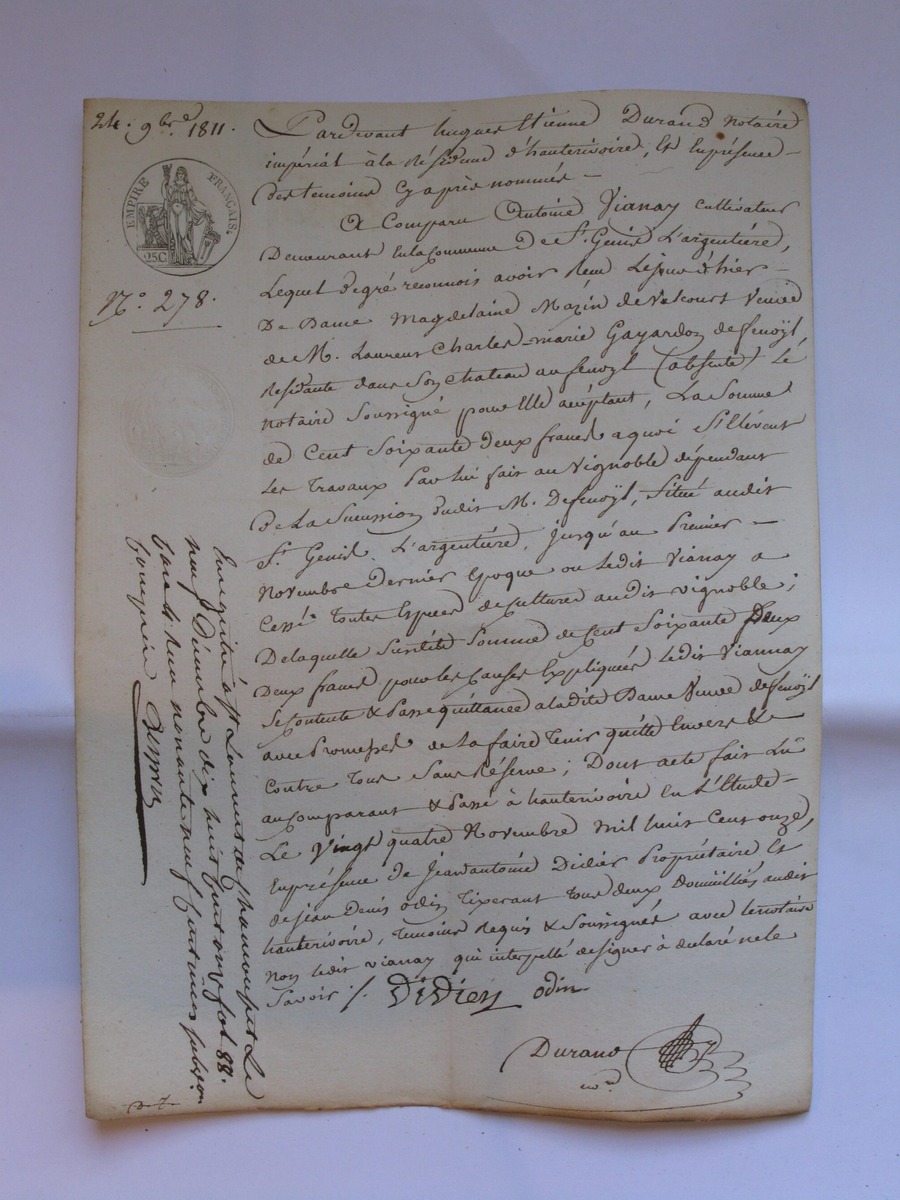 24. 9bre 1811.
EMPIRE FRANÇAIS.
25C
N°. 278.
Pardevant hugues Etienne Durand Notaire
impérial à la Résidence d'hauterivoire, Et En présence
Des temoins Cy après nommés
A Comparu Antoine Vianay Cultivateur
Demeurant En la Commune De St. Genis L'argentière,
Lequel de gré reconnois avoir Reçu Le jour d'hier
De Dame Magdelaine Mazin de Valcourt Veuve
de M. Laurent Charles-marie Gayardon de fenoÿl
Residante dans Son Chateau au fenoyl (absente) Le
Notaire Soussigné pour Elle acceptant, La Somme
de Cent Soixante deux francs a quoi S'Elévent
Les Travaux Par lui fait au Vignoble dépendant
De La Succession dudit M. De fenoÿl, Situé audit
St. Genis L'argentiére, jusqu'au Premier
Novembre Dernier époque ou Ledit Vianay a
Cessé toutes Especes de Cultures audit vignoble;
De laquelle Susdite Somme de Cent Soixante Deux
Deux francs pour les Causes Expliquées Ledit Viannay
Se Contente & Passe quittance a ladite Dame Veuve de fenoÿl
avec Promesse De La faire Tenir quitte Envers &
Contre Tous Sans Réserve; Dont acte fait Lu
au Comparant & Passé à hauterivoire En L'Etude
Le Vingt quatre Novembre Mil huit Cent onze,
En présence de Jean antoine Didier Propriétaire Et
de jean Denis odin Tixerant Tous deux Domiciliés audit
hauterivoire, temoins Requis & Soussignés avec le notaire
Non Ledit vianay qui interpellé de signer à déclaré ne le
Savoir /.
Didier odin
Durand
nre
Enregistré à St Laurent de chamousset Le
neuf Décembre dix huit cent onze fol 88.
Reçu nonante neuf centimes subvon
comprise